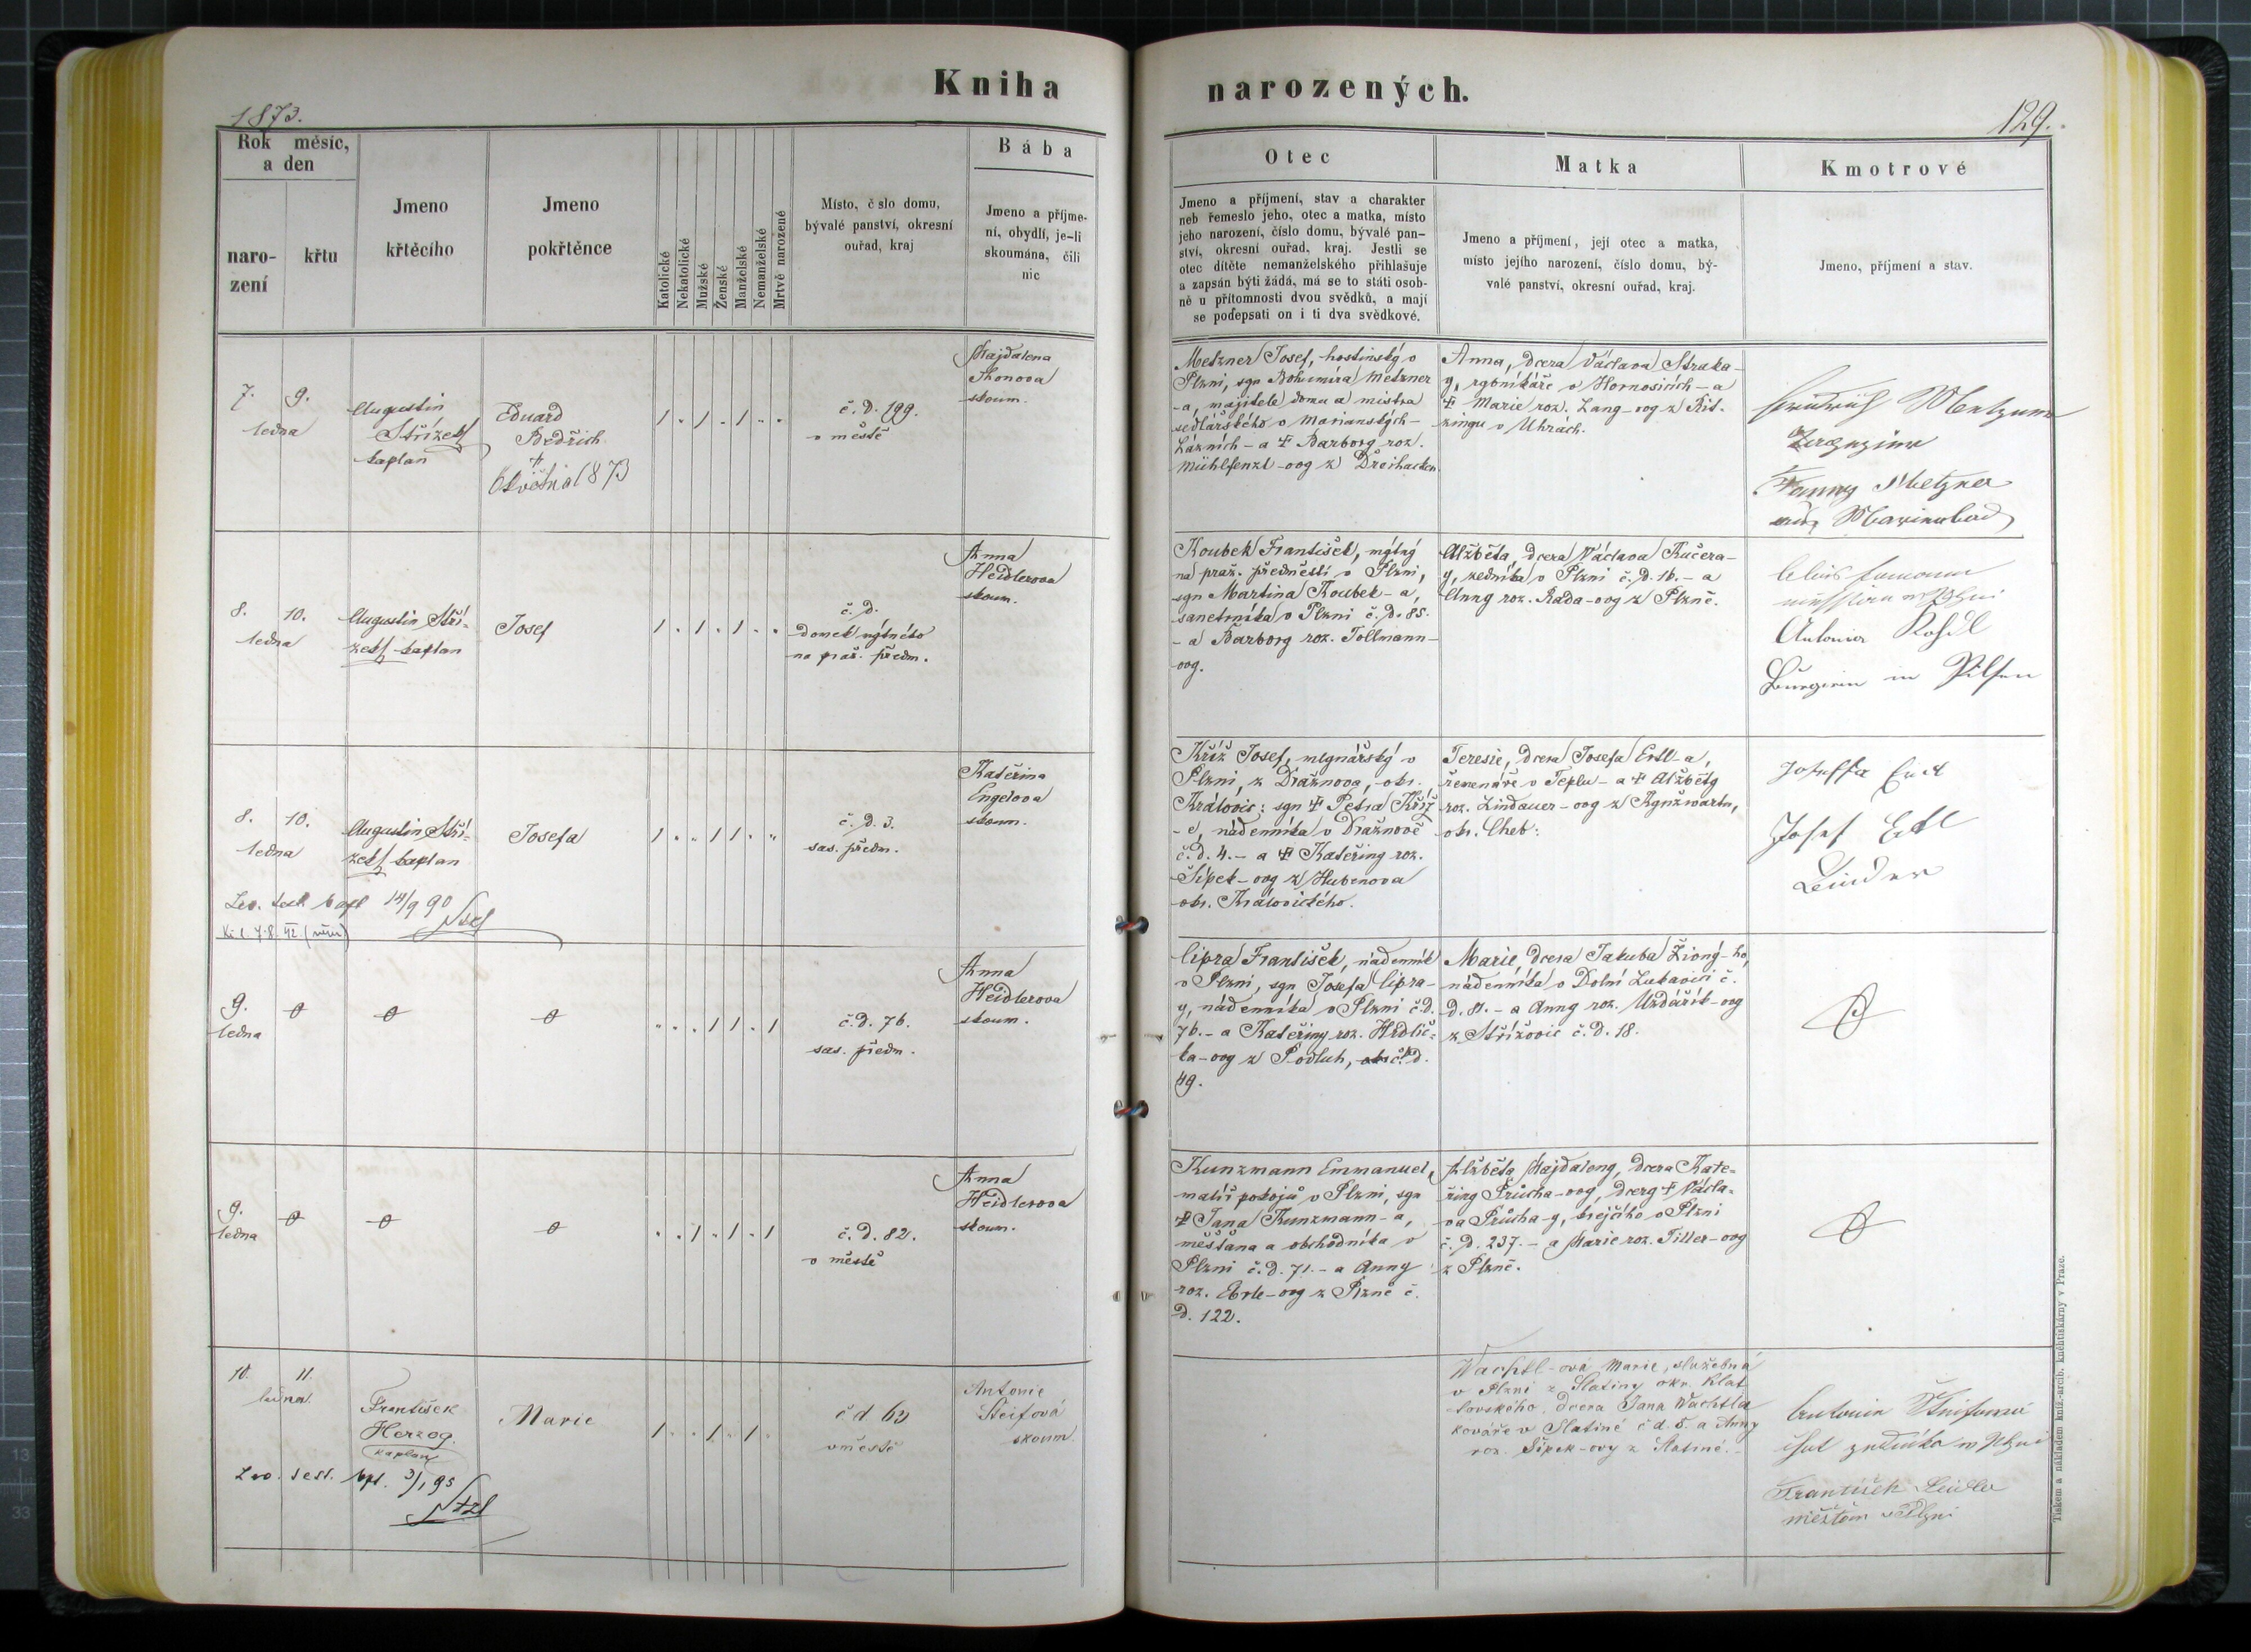 Kniha narozených.
1873.
129.
Rok měsíc,
a den
naro-
zení
křtu
Jmeno
křtěcího
Jmeno
pokřtěnce
Katolické
Nekatolické
Mužské
Ženské
Manželské
Nemanželské
Mrtvě narozené
Místo, č slo domu,
bývalé panství, okresní
ouřad, kraj
Bába
Jmeno a příjme-
ní, obydlí, je-li
skoumána, čili
nic
Otec
Jmeno a příjmení, stav a charakter
neb řemeslo jeho, otec a matka, místo
jeho narození, číslo domu, bývalé pan-
ství, okresní ouřad, kraj. Jestli se
otec dítěte nemanželského přihlašuje
a zapsán býti žádá, má se to státi osob-
ně u přítomnosti dvou svědků, a mají
se podepsati on i ti dva svědkové.
Matka
Jmeno a příjmení, její otec a matka,
místo jejího narození, číslo domu, bý-
valé panství, okresní ouřad, kraj.
Kmotrové
Jmeno, příjmení a stav.
7. 9.
ledna
Augustin
Střízek
kaplan
Eduard
Bedřich
+
května 1873
č. d. 199.
v městě
Majdalena
skoum.
Metzner Josef, hostinský v
Plzni, syn Bohumíra Metzner
-a, majitele domu a mistra
sedlářského v Marianských-
Lázních - a + Barbory roz.
Mühlfenzl-ovy z Dreihacken.
Anna, dcera Václava Straka-
y, rybníkáře v Hornosiních - a
+ Marie roz. Lang-ovy z Kit-
zingu v Uhrách.
Fanny Metzner
aus Marienbad
8. 10.
ledna
Augustin Stří-
zek kaplan
Josef
č. d.
domek mýtného
na praž. předm.
Anna
Heidlerova
skoum.
Koubek František, mýtný
na praž. předměstí v Plzni,
syn Martina Koubek-a,
sanetrníka v Plzni č. d. 85.
- a Barbory roz. Tollmann-
ovy.
Alžběta, dcera Václava Kučera-
y, zedníka v Plzni č. d. 16. - a
Anny roz. Rada-ovy z Plzně.
Antonia
Bürgerin in Pilsen
8. 10.
ledna
Augustin Stří-
zek kaplan
Josefa
č. d. 3.
sas. předm.
Kateřina
Engelova
skoum.
Kříž Josef, mlynářský v
Plzni, z Dražnova, okr.
Královic: syn + Petra Kříž
-e, nádenníka v Dražnově
č. d. 4. - a + Kateřiny roz.
Šípek-ovy z Hubenova
okr. Královického.
Teresie, dcera Josefa Ertl-a,
řemenáře v Teplu - a + Alžběty
roz. Lindauer-ovy z Kynžwartu,
okr. Cheb:
Josef Ertl
Binder
14/9 90
9.
ledna
č. d. 76.
sas. předm.
Anna
Heidlerova
skoum.
Cipra František, nádenník
v Plzni, syn Josefa Cipra-
y, nádenníka v Plzni č. d.
76. - a Kateřiny roz. Hrdlič-
ka-ovy z Podluh, č. d.
49.
Marie, dcera Jakuba Živný-ho,
nádenníka v Dolní Lukavici č.
d. 81. - a Anny roz. Uzdářík-ovy
z Střížovic č. d. 18.
9.
ledna
č. d. 82.
v městě
Anna
Heidlerova
skoum.
Kunzmann Emmanuel,
malíř pokojů v Plzni, syn
+ Jana Kunzmann-a,
měšťana a obchodníka v
Plzni č. d. 71. - a Anny
roz. Eble-ovy z Plzně č.
d. 122.
Alžběta Majdaleny, dcera Kate-
řiny Průcha-ovy, dcery + Václa-
va Průcha-y, krejčího v Plzni
č. d. 237. - a Marie roz. Tiller-ovy
z Plzně.
10. 11.
ledna.
František
Herzog.
kaplan
Marie
č d 63
v městě
Antonie
Steifová
skoum.
Wachtl-ová Marie, služebná
v Plzni z Slatiny okr. Klat
tovského, dcera Jana Wachtla
kováře v Slatině č d. 5. a Anny
roz. Šípek-ovy z Slatiné.
František
měšťan v Plzni
3/1 95
Tiskem a nákladem kníž.-arcib. kněhtiskárny v Praze.